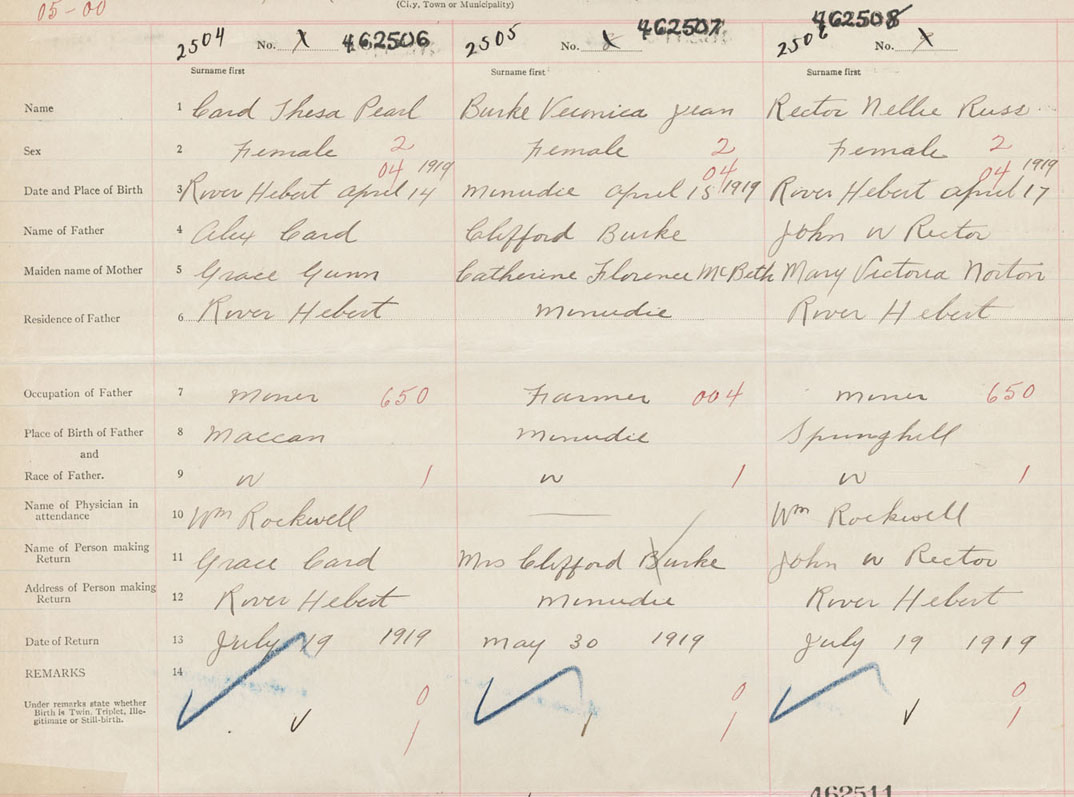 05-00
(City, Town or Municipality)
2504 No. X 462506 2505 No. X 462507 2506 No. X 462508
Surname first Surname first Surname first
Name 1 Card Thesa Pearl Burke Veronica Jean Rector Nellie Russ
Sex 2 Female 2 Female 2 Female 2
04 1919 04 04 1919
Date and Place of Birth 3 River Hebert April 14 Minudie April 15 1919 River Hebert April 17
Name of Father 4 Alex Card Clifford Burke John W Rector
Maiden name of Mother 5 Grace Gunn Catherine Florence McBeth Mary Victoria Norton
Residence of Father 6 River Hebert Minudie River Hebert
Occupation of Father 7 Miner 650 Farmer 004 Miner 650
Place of Birth of Father 8 Maccan Minudie Springhill
and
Race of Father. 9 W 1 W 1 W 1
Name of Physician in
attendance 10 Wm Rockwell — Wm Rockwell
Name of Person making
Return 11 Grace Card Mrs Clifford Burke John W Rector
Address of Person making
Return 12 River Hebert Minudie River Hebert
Date of Return 13 July 19 1919 May 30 1919 July 19 1919
REMARKS 14
Under remarks state whether
Birth is Twin, Triplet, Ille-
gitimate or Still-birth.
0 0 0
1 1 1
462511